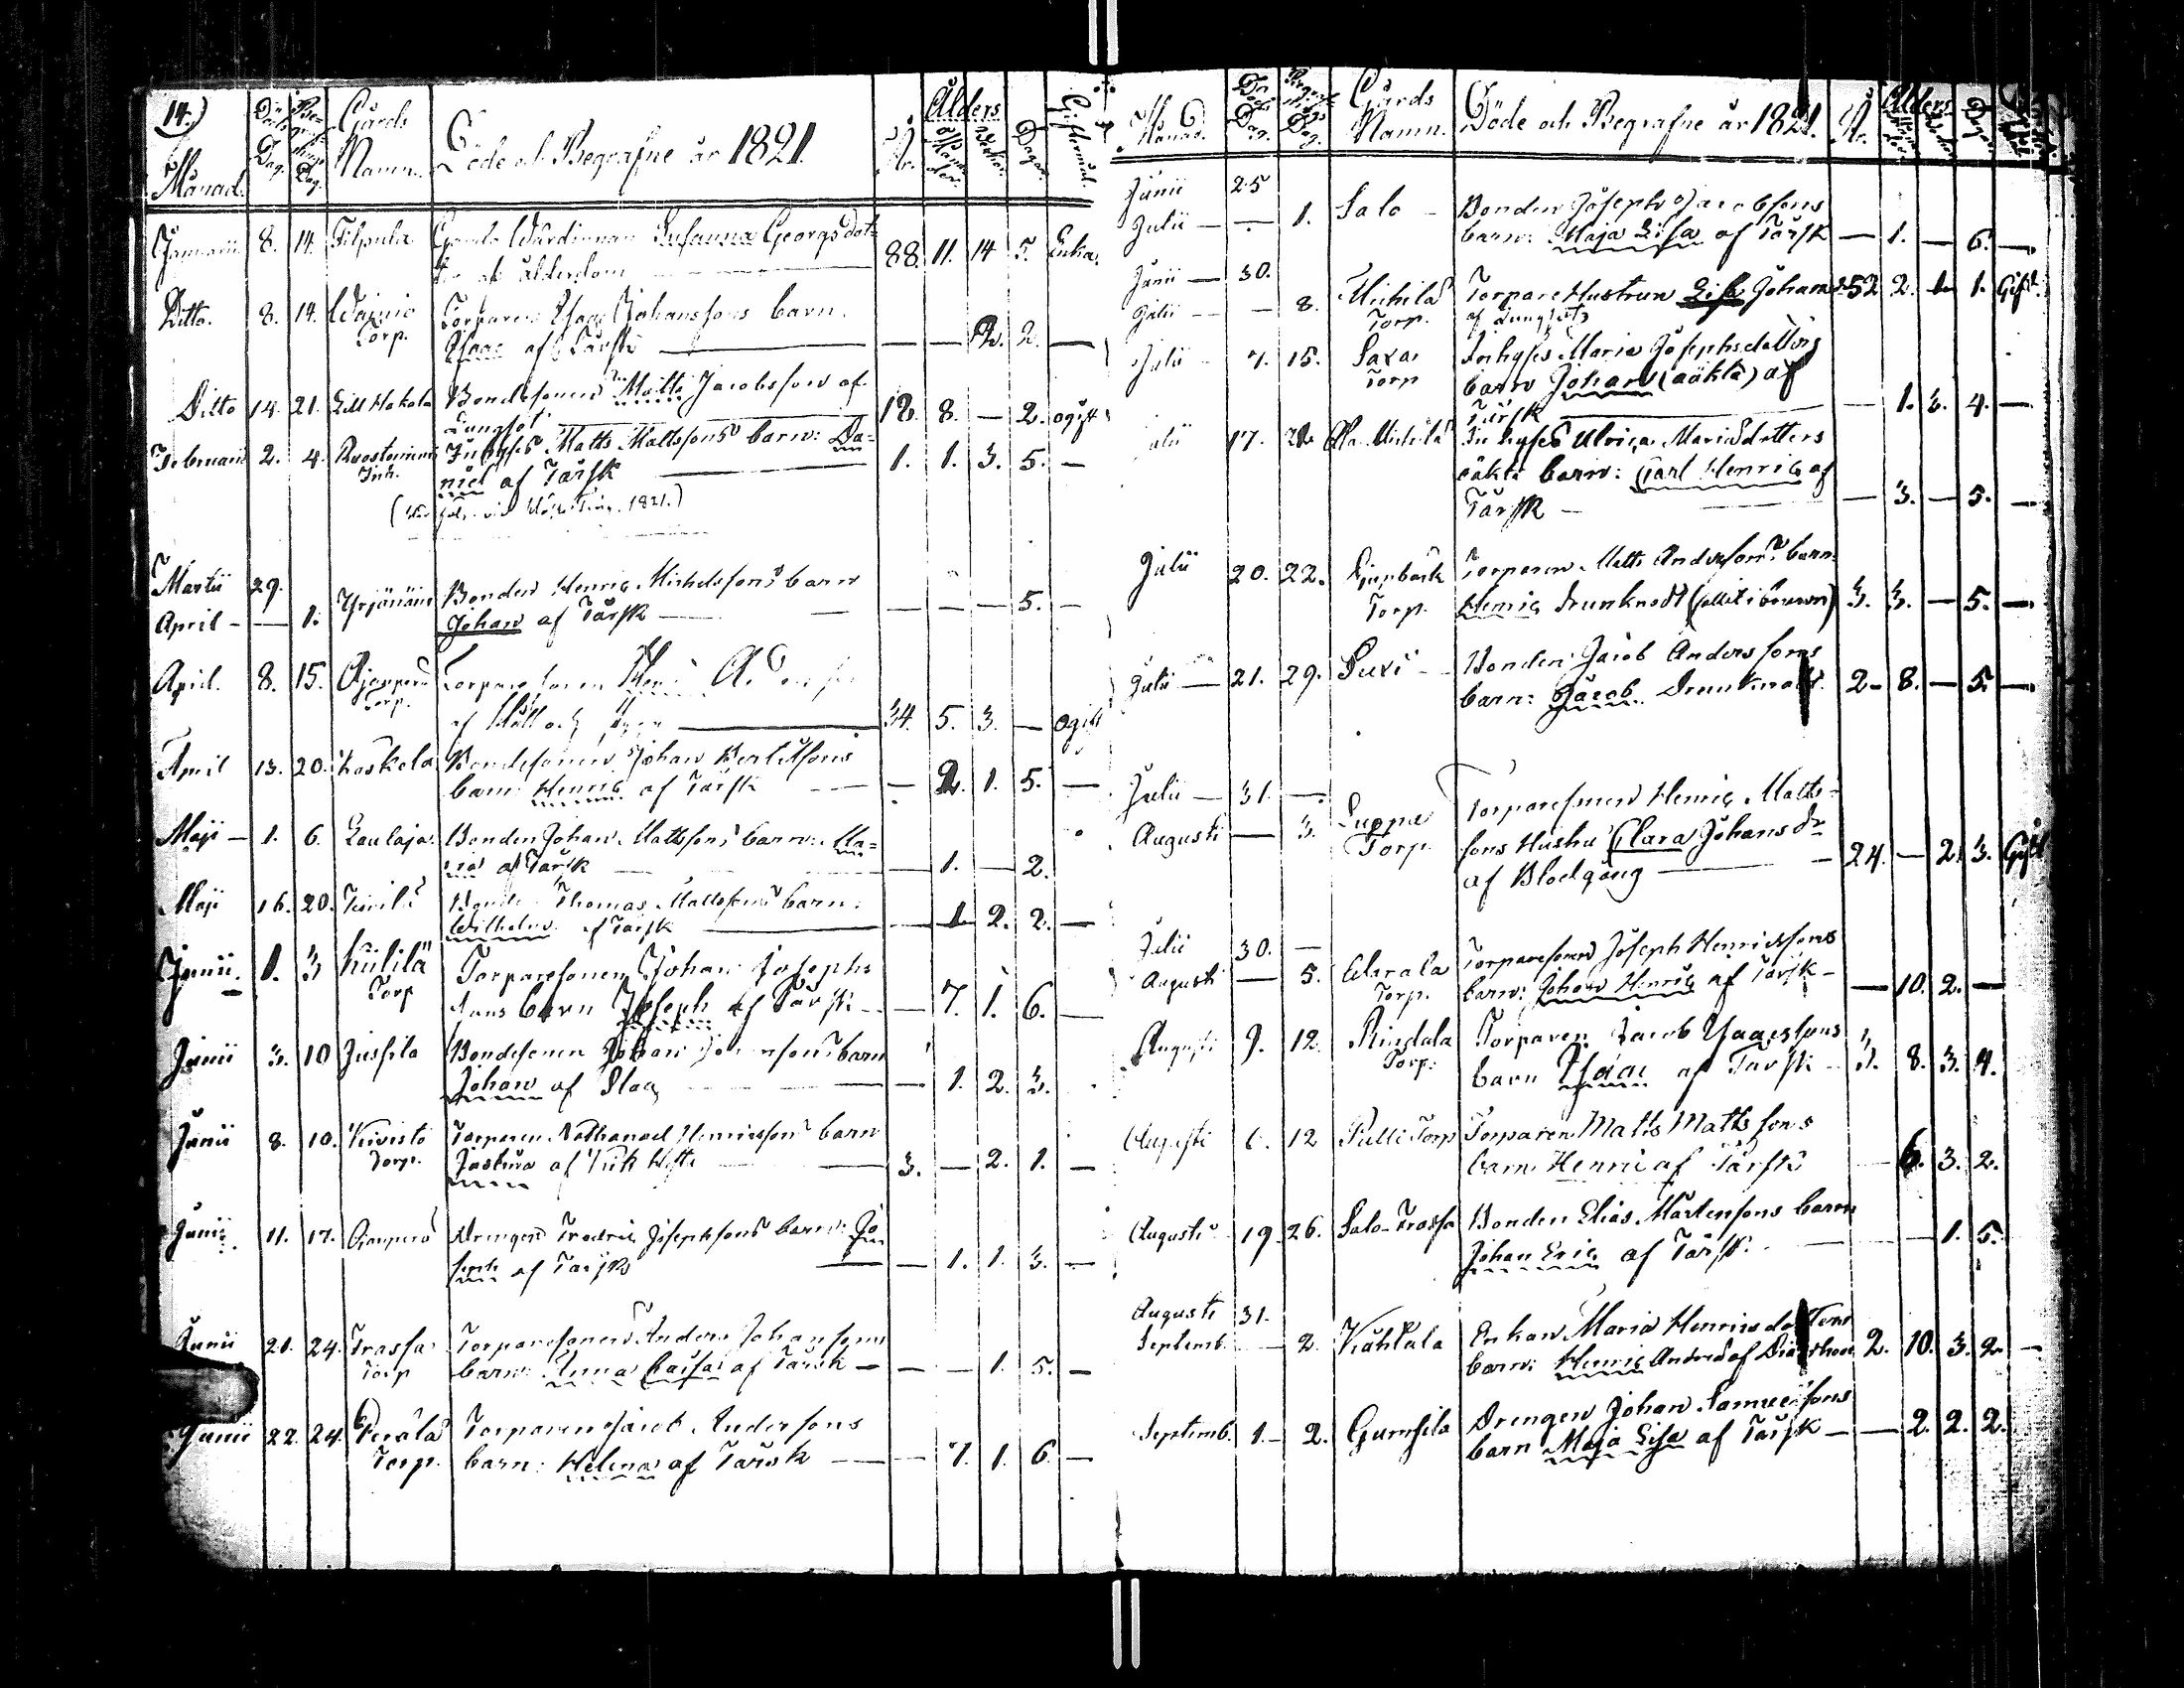 14.)
Månad. Döds Dag. Begrafnings Dag. Gårds Namn. Döde och Begrafne år 1821. År. Ålders Månader. Veckor. Dagar. Giftermål.
Januarii 8. 14. Filpula Susanna Georgsdot=
af ålderdom 88. 11. 14 5. Enka.
Ditto. 8. 14. Wainio Torparen Isaac Johanssons barn.
Torp. Isaac af Tårsk — — — 2. 2. —
Ditto 14. 21. Lill Hakola Bondesonen Matts Jacobsson af
Lungsot 18. 8. — 2. ogift
Februarii 2. 4. Inhyses Matts Mattssons barn: Da=
Inh. niel af Tårsk 1. 1. 3. 5. —
1821.)
Martii 29. Yrjänäin Bonden Henric Michelssons barn
April — — 1. Johan af Tårsk — — — — 5. —
April. 8. 15. Ojanperä Torpare sonen
Torp. af 34. 5. 3. — ogift
April 13. 20. Kaskela Bondesonen Johan Bertilssons
barn Henric af Tårsk — — 2. 1. 5. —
Maji — 1. 6. Laulaja Bonden Johan Mattssons barn: Ma=
ria af Tårsk — 1. — 2.
Maji 16. 20. Bonden Thomas Mattssons barn:
Wilhelm af Tårsk — 1 2. 2. —
Junii 1. 3 Kiililä Torparesonen Johan Josephs
Torp sons barn Joseph af Tårsk — — 7. 1. 6. —
Junii 3. 10 Jussila Bondesonen Johan barn
Johan af Slag — 1. 2. 3.
Junii 8. 10. Kivistö Torparen Nathanael Henricssons barn
Torp. Justina af Kikhosta 3. — 2. 1. —
Junii 11. 17. Ojanperä Drengen Fredric Josephssons barn: Jo
seph af Tårsk — — 1. 1. 3. —
Junii 21. 24. Trassa Torparesonens Anders Johanssons
Torp barn: Anna Caisa af Tårsk — — — 1. 5. —
Junii 22. 24. Perälä Torparen Jacob Anderssons
Torp. barn: Helena af Tårsk — — 7. 1. 6. —
Månad. Döds Dag. Begrafnings Dag. Gårds Namn. Döde och Begrafne år 1821. År. Ålders
Junii 25
Julii — — 1. Salo — Bonden Joseph Jacobssons
barn: Maja Lisa af Tårsk — 1. — 6. —
Junii — 30.
Julii — — 8. Michilä Torpare Hustrun Lisa Johansd. 52 2. 1 1. Gift.
Torp. af Lungsot
Julii 7. 15. Saxa Inhyses Maria Josephsdotters
Torp barn Johan (oäkta) af
Tårsk — 1. 3. 4. —
Julii 17. 22 Michilä Inhyses Ulrica Mariasdotters
oäkta barn: Carl Henric af
Tårsk — — 3. — 5. —
Julii 20. 22. Torparen Matts Anderssons barn
Torp. Henric drunknadt (fallit i brunn) 3. 3. — 5. —
Julii — 21. 29. Suxi — Bonden Jacob Anderssons
barn: Jacob Drunknadt. 2 — 8. — 5. —
Julii — 31. —
Augusti — 3. Luoma Torparesonens Henric Matts=
Torp. sons Hustru Clara Johansdr
af Blodgång — — 24. — 2. 3. Gift
Julii 30. —
Augusti — 5. Alarala Torparesonens Joseph Henricssons
Torp. barn: Johan Henric af Tårsk — — 10. 2. —
Augusti 9. 12. Rindala Torparen Jacob Isaacssons
Torp. barn Isaac af Tårsk — 3. 8. 3. 4.
Augusti 6. 12 Pulli Torp Torparen Matts Mattssons
barn Henric af Tårsk — 6. 3. 2.
Augusti 19. 26. Salo-Trassa Bonden Elias Mårtenssons barn
Johan Eric af Tårsk. — — 1. 5.
Augusti 31.
Septemb. — 2. Kuhtala Enkan Maria Henricsdotters
barn: Henric Anders af 2. 10. 3. 2. —
Septemb. 1. — 2. Gumsila Drengen Johan Samuelssons
barn Maja Lisa af Tårsk — — 2. 2. 2.